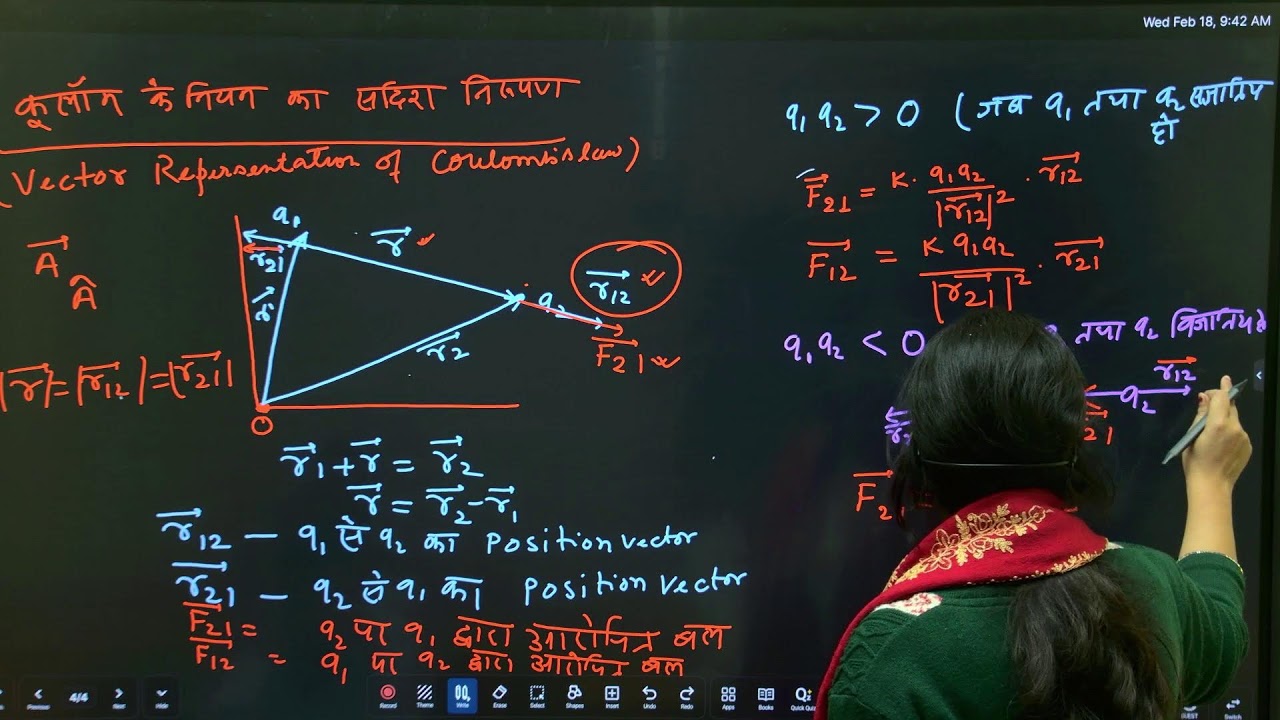 Wed Feb 18, 9:42 AM
कूलॉम के नियम का सदिश निरूपण
(Vector Repersentation of Coulombislaw)
A⃗
Â
q₁
r⃗ ✓
r⃗₂₁
r⃗₁₂ ✓
q₂
F⃗₂₁ ✓
r⃗₂
O
|r⃗| = |r⃗₁₂| = |r⃗₂₁|
r⃗₁ + r⃗ = r⃗₂
r⃗ = r⃗₂ - r⃗₁
r⃗₁₂ — q₁ से q₂ का position vector
r⃗₂₁ — q₂ से q₁ का position vector
F⃗₂₁ = q₂ पा q₁ द्वारा आरोपित बल
F⃗₁₂ = q₁ पा q₂ द्वारा आरोपित बल
q₁ q₂ > 0 (जब q₁ तथा q₂ सजातिय
हो
F⃗₂₁ = K · q₁q₂ / |r⃗₁₂|² · r⃗₁₂
F⃗₁₂ = K q₁q₂ / |r⃗₂₁|² · r⃗₂₁
q₁ q₂ < 0 तथा q₂ विजातिय हो
r⃗₁₂
q₂
21
F⃗₂₁ =
4/4
Next
Record
Theme
Write
Erase
Select
Shapes
Insert
Undo
Redo
Apps
Book
Quick Quiz
Switch